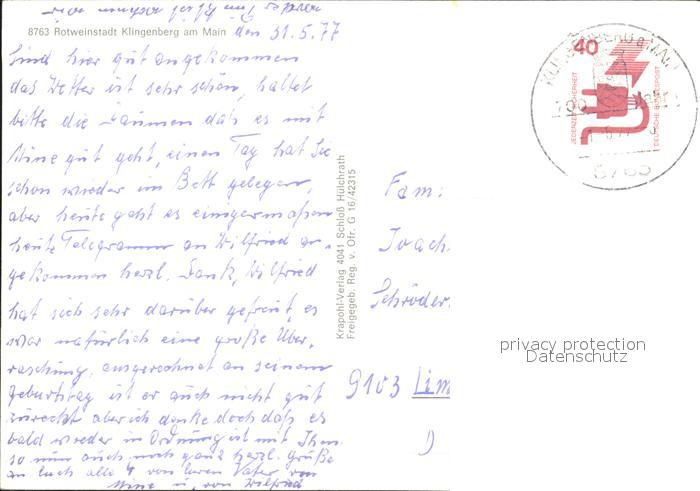 8763 Rotweinstadt Klingenberg am Main den 31.5.77
Sind hier gut angekommen
das Wetter ist sehr schön, haltet
bitte die Daumen daß es mit
Mine gut geht, einen Tag hat Sie
schon wieder im Bett gelegen,
aber heute geht es einigermaßen
heute Telegramm an Wilfried an-
gekommen herzl. Dank, Wilfried
hat sich sehr darüber gefreut, es
war natürlich eine große Über-
raschung, ausgerechnet an seinem
Geburtstag ist er auch nicht gut
zurecht aber ich denke doch daß es
bald wieder in Ordnung ist mit Ihm.
so nun auch noch ganz herzl. Grüße
an Euch alle 4 von Vater von
Mine u. von Wilfried
Krapohl-Verlag 4041 Schloß Hülchrath
Freigegeb. Reg. v. Ofr. G 16/42315
40
JEDERZEIT SICHERHEIT
DEUTSCHE BUNDESPOST
KLINGENBERG a. MAIN
8763
Fam:
Joach
Schröder
9103 Lim
privacy protection
Datenschutz